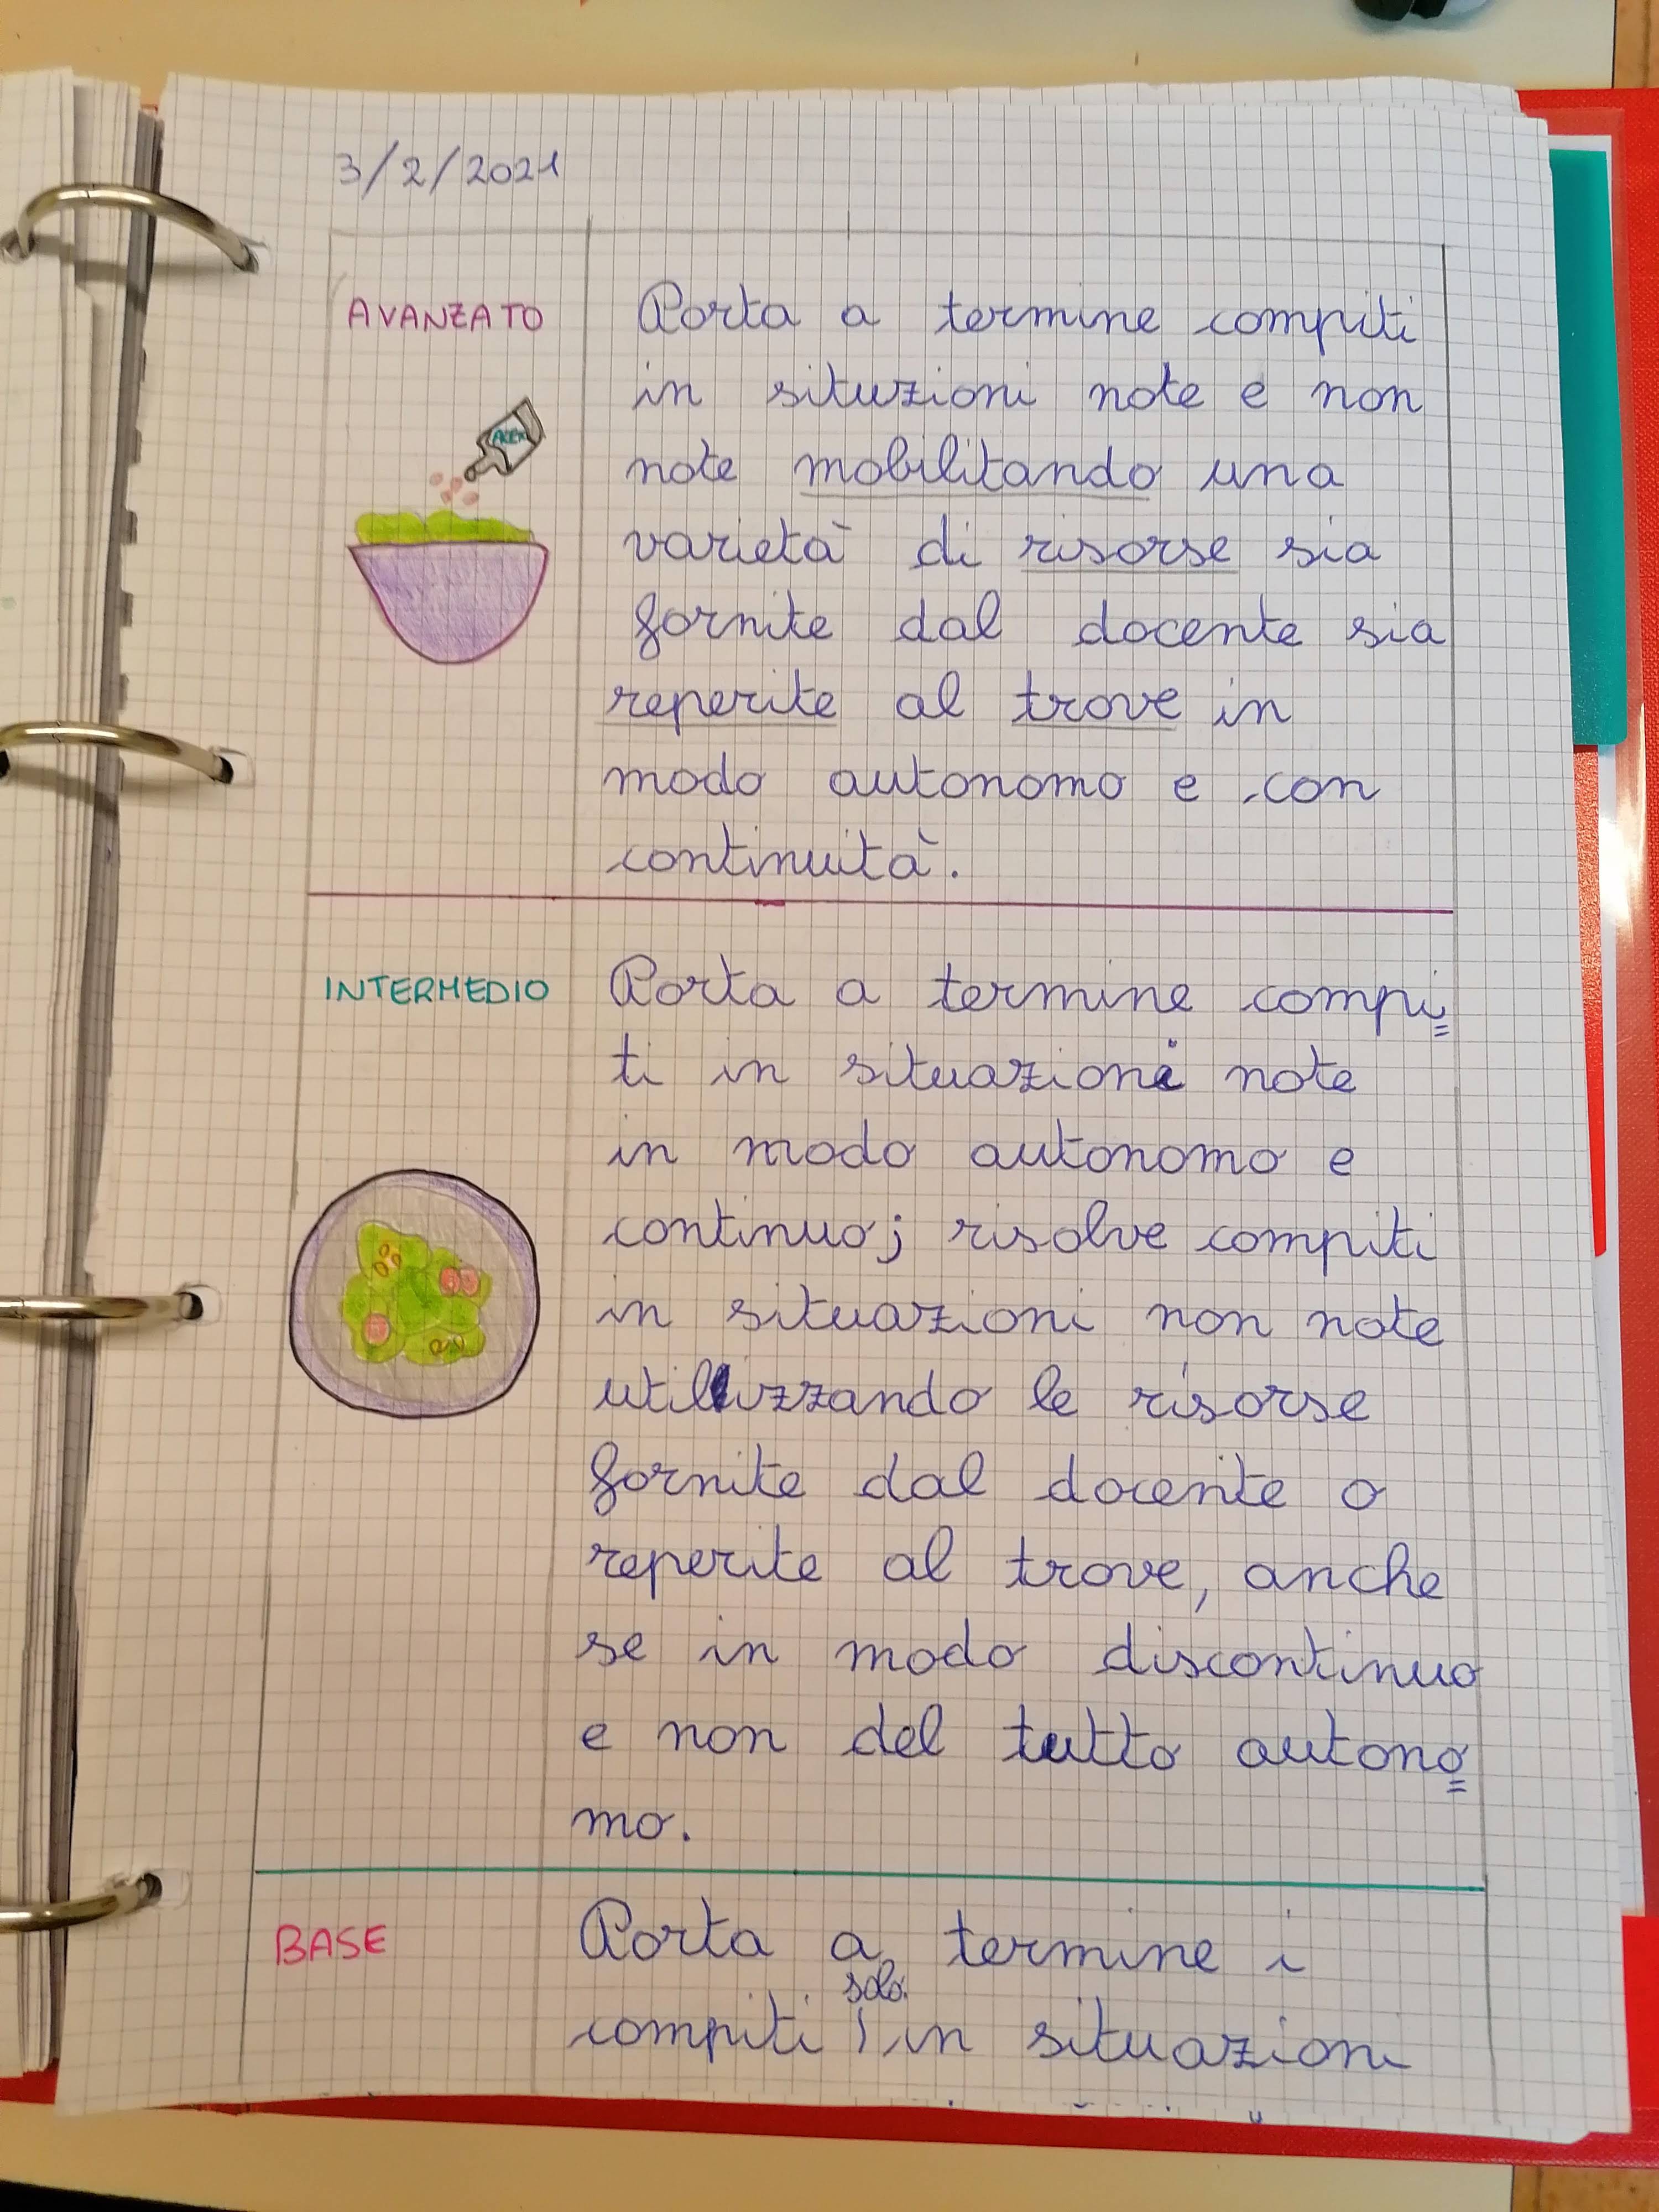 3/2/2021
AVANZATO
Porta a termine compiti
in situzioni note e non
note mobilitando una
varietà di risorse sia
fornite dal docente sia
reperite al trove in
modo autonomo e con
continuità.
INTERMEDIO
Porta a termine compi
ti in situazioni note
in modo autonomo e
continuo; risolve compiti
in situazioni non note
utilizzando le risorse
fornite dal docente o
reperite al trove, anche
se in modo discontinuo
e non del tutto autono
mo.
BASE
Porta a termine i
solo
compiti in situazioni